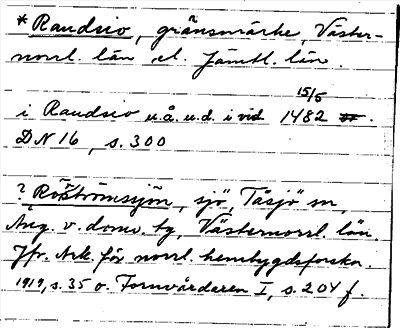 *Raudsio, gränsmärke, Väster-
norrl. län el. Jämtl. län.
i Raudsio u.å. u.d. i vid 15/5 1482
DN 16, s. 300
? Röströmssjön, sjö, Tåsjö sn,
Ång. v. doms. tg, Västernorrl. län.
Jfr. Ark. för norrl. hembygdsforskn.
1919, s. 35 o. Fornvårdaren I, s. 204 f.